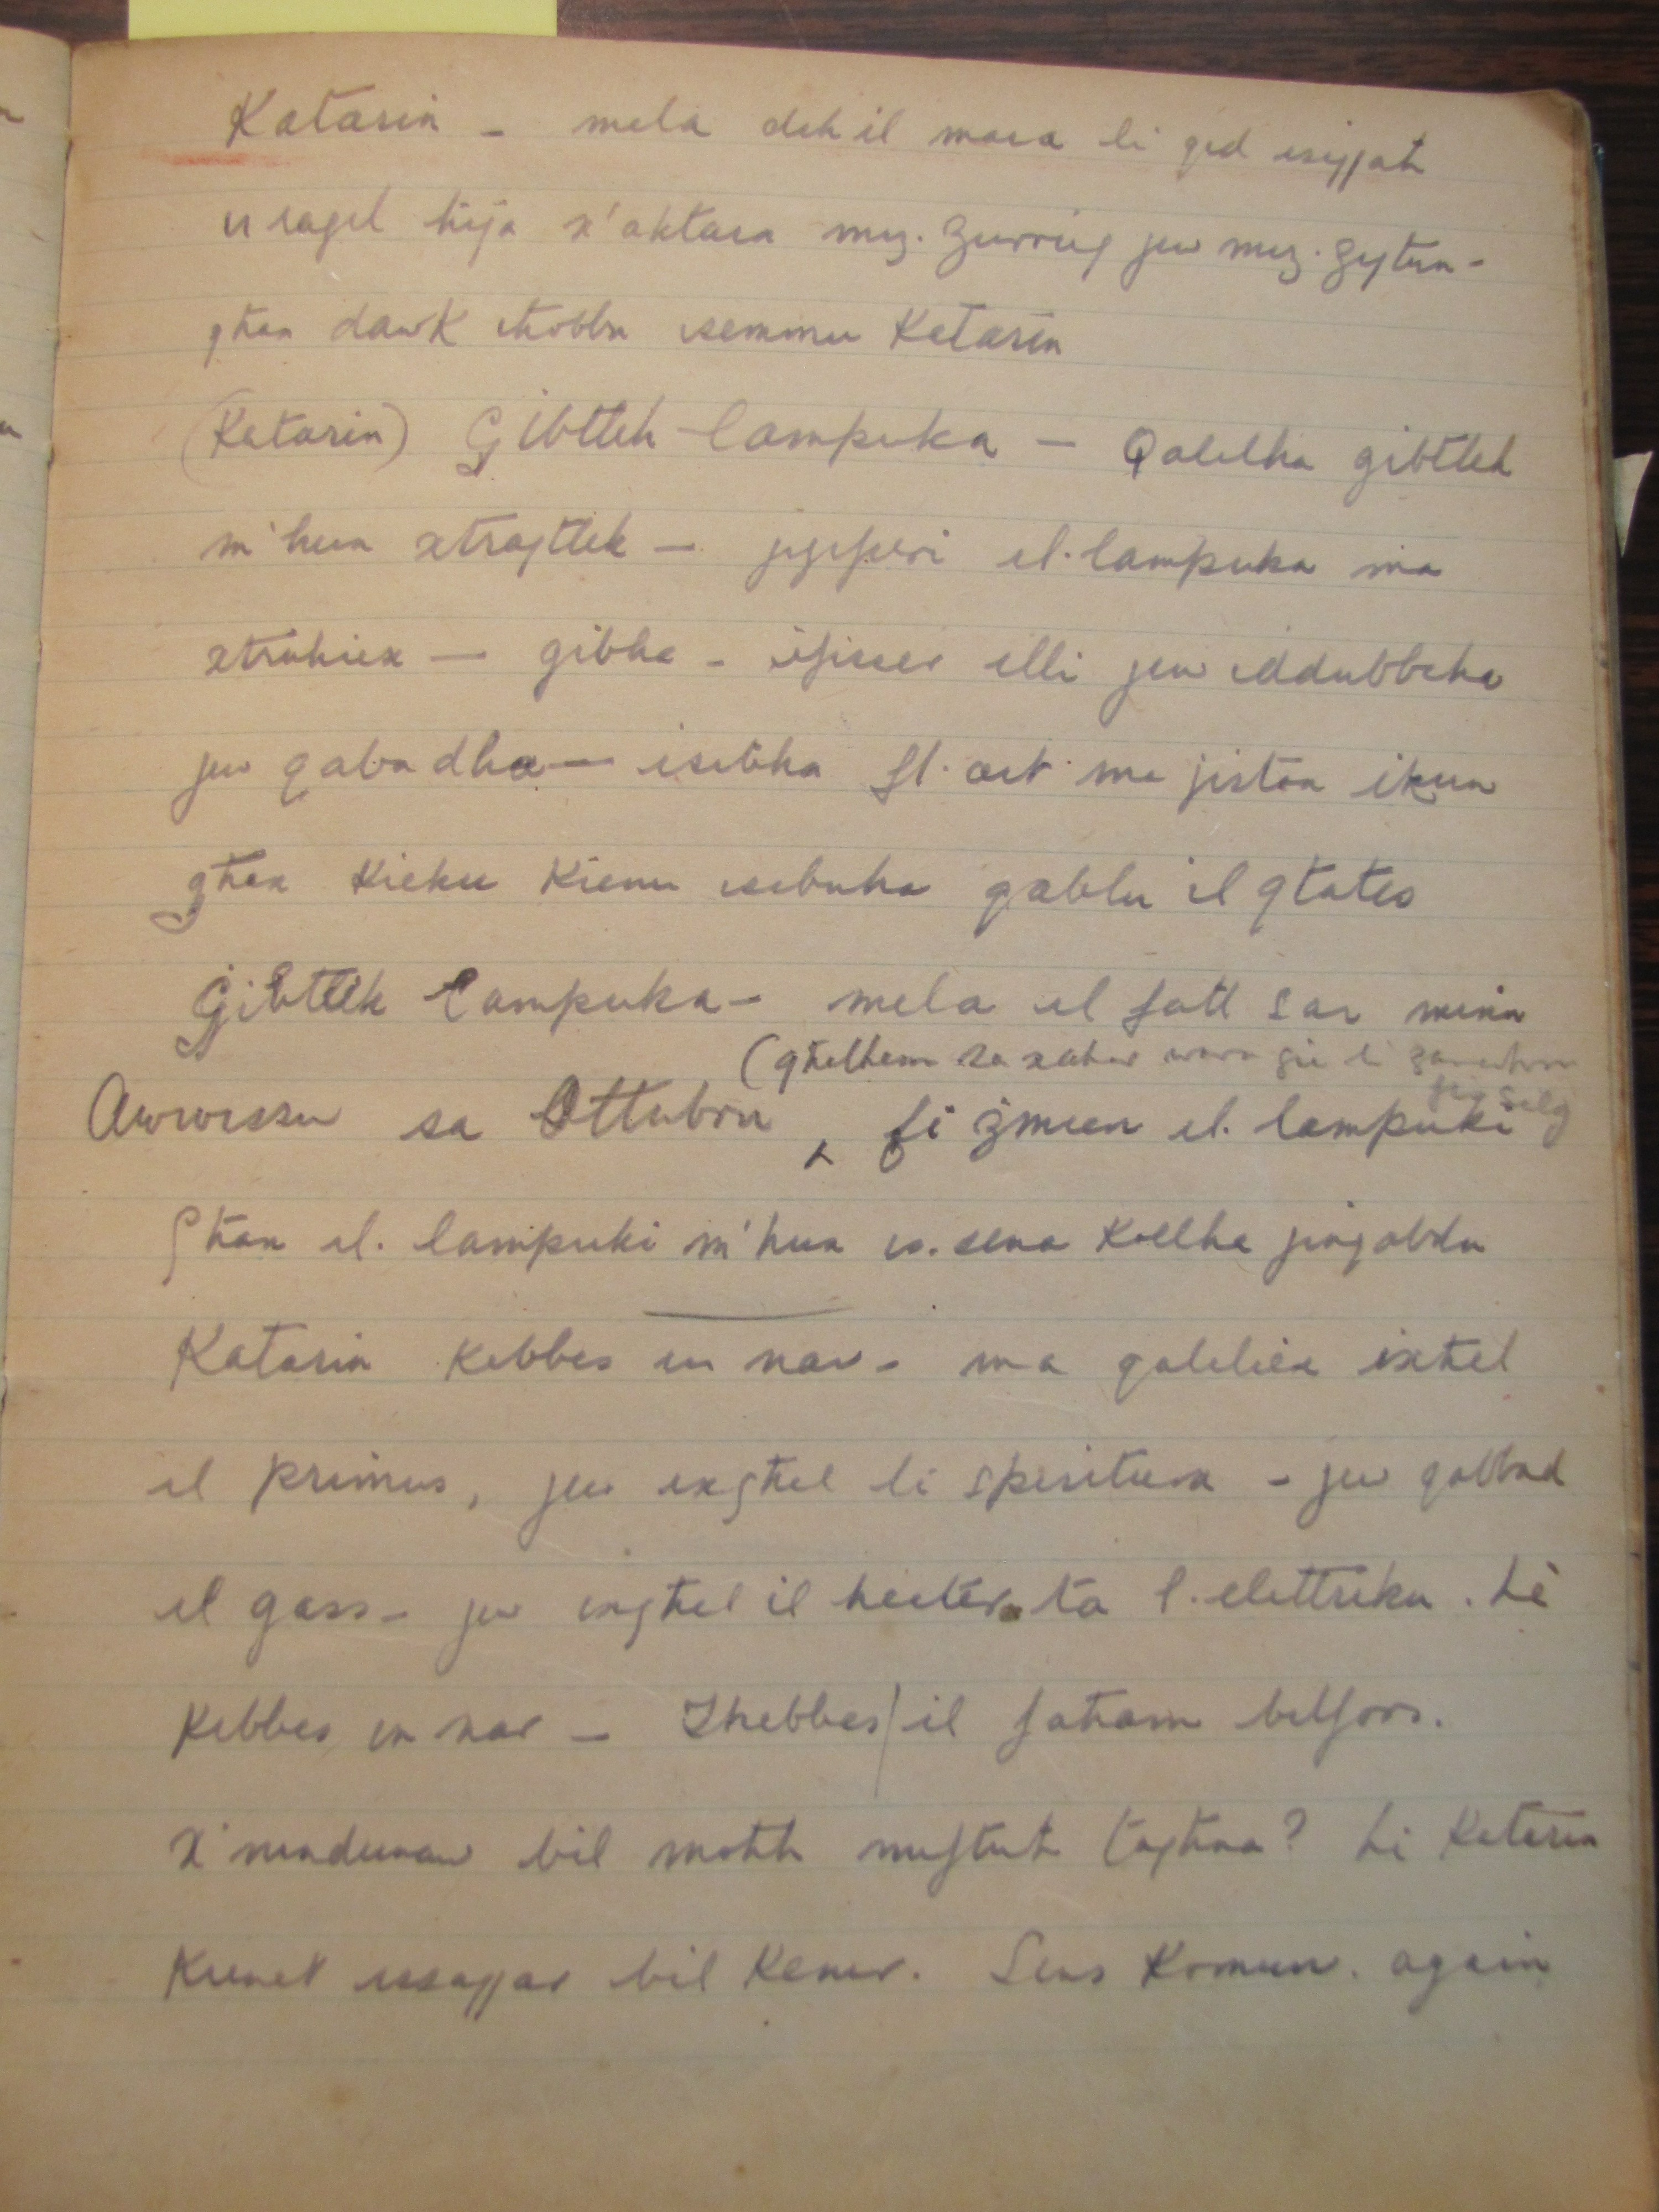 Katarin - mela deh il mara li qed issejjaħ
ir ragel hija x'aktara miż-Żurrieq jew miż-Żejtun -
għax dawk iħobbu isemmu Katarin
(Katarin) Ġibtlek lampuka — Qalelha gibtlek
m'hux xtrajtlek — jigifieri el-lampuka ma
xtrahiex — gibha - ifisser illi jew iddubbaha
jew qabadha — isibha fl-art ma jistax ikun
għax kieku kienu isibuha qablu il qtates
Ġibtlek lampuka - mela el fatt sar minn
(għelhem sa xahar wara ġie li
Awwissu sa Ottubru ^ fi żmien el-lampuki
għax el-lampuki m'hux is-sena kollha jinqabdu
Katarin kebbes in nar - ma qaleliex ixhel
el primus, jew ixgħel li spiritiera - jew qabbad
el gass - jew ixgħel il heater ta l-elettriku. Le
kebbes in nar - Ikebbes / il faħam bilfors.
X'nindunaw bil moħħ miftuħ tagħna? Li Katarin
kienet issajjar bil kenur. Sens Komun. again